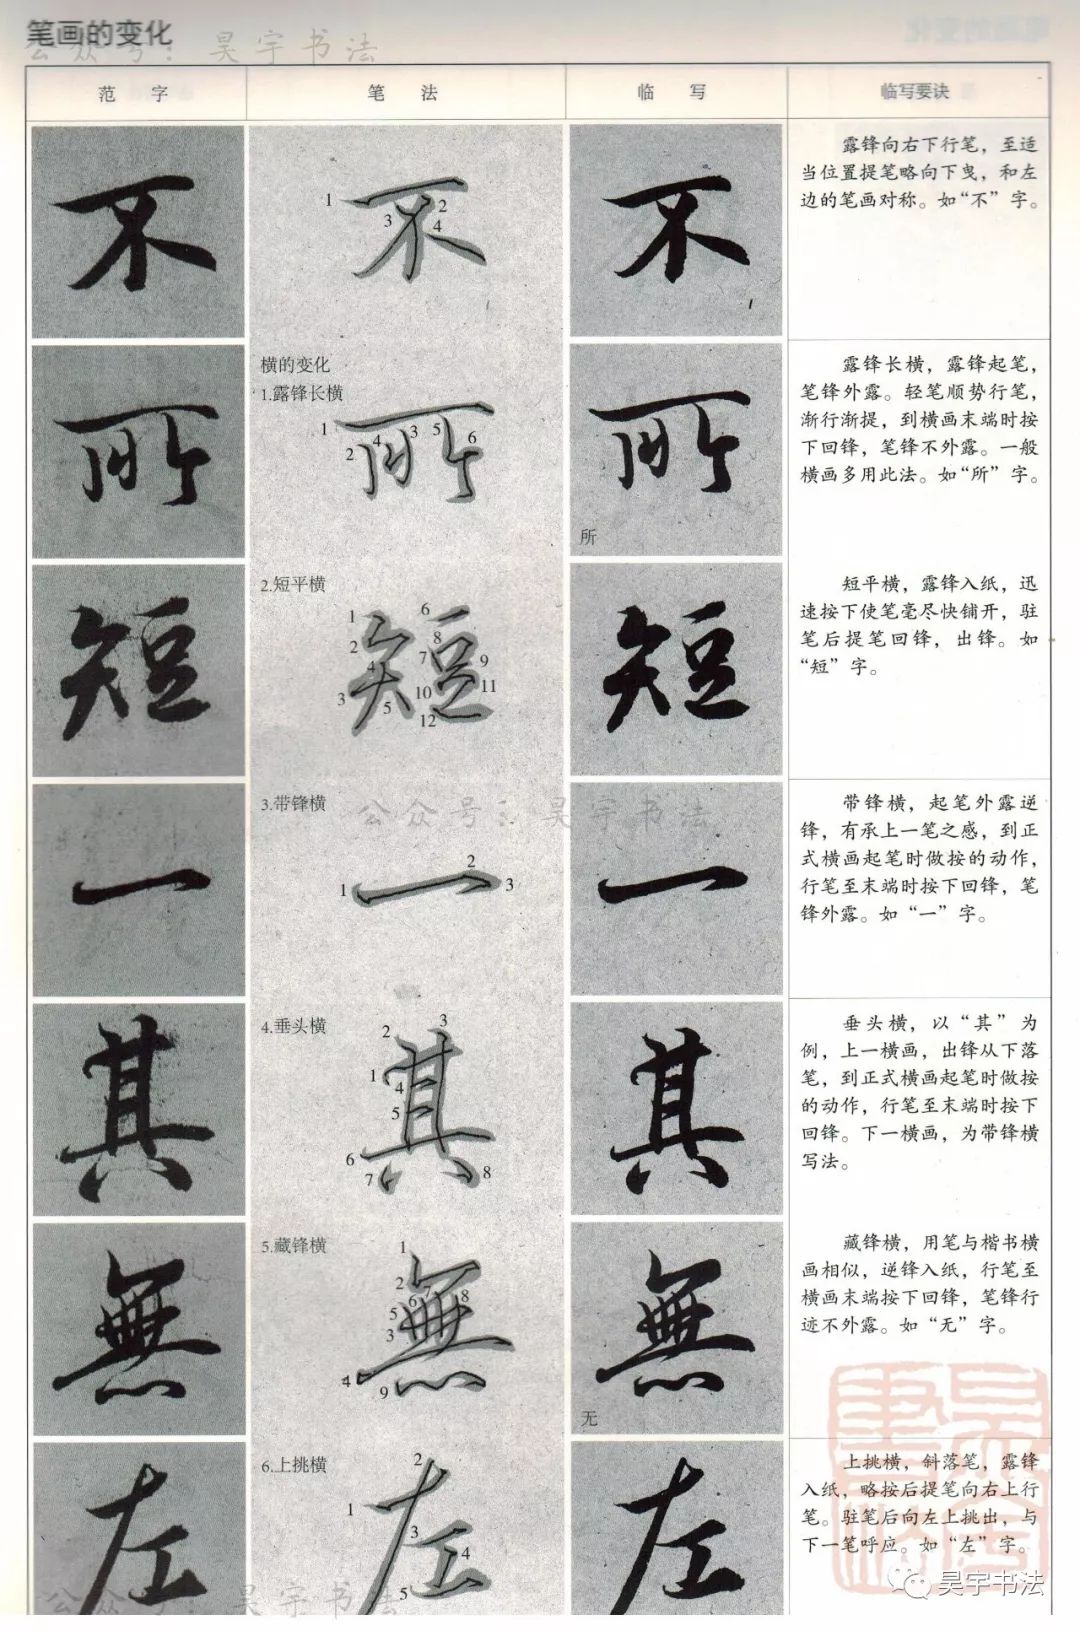 笔画的变化
公众号：昊宇书法
范 字 笔 法 临 写 临写要诀
不
1 2 3 4
不
露锋向右下行笔，至适
当位置提笔略向下曳，和左
边的笔画对称。如“不”字。
所
横的变化
1.露锋长横
1 2 4 3 5 6
所
所
露锋长横，露锋起笔，
笔锋外露。轻笔顺势行笔，
渐行渐提，到横画末端时按
下回锋，笔锋不外露。一般
横画多用此法。如“所”字。
短
2.短平横
1 2 3 4 5 6 7 8 9 10 11 12
短
短平横，露锋入纸，迅
速按下使笔毫尽快铺开，驻
笔后提笔回锋，出锋。如
“短”字。
一
3.带锋横
公众号：昊宇书法
1 2 3
一
带锋横，起笔外露逆
锋，有承上一笔之感，到正
式横画起笔时做按的动作，
行笔至末端时按下回锋，笔
锋外露。如“一”字。
其
4.垂头横
1 2 3 4 5 6 7 8
其
垂头横，以“其”为
例，上一横画，出锋从下落
笔，到正式横画起笔时做按
的动作，行笔至末端时按下
回锋。下一横画，为带锋横
写法。
無
5.藏锋横
1 2 3 4 5 6 7 8 9
無
无
藏锋横，用笔与楷书横
画相似，逆锋入纸，行笔至
横画末端按下回锋，笔锋行
迹不外露。如“无”字。
左
6.上挑横
1 2 3 4 5
左
上挑横，斜落笔，露锋
入纸，略按后提笔向右上行
笔。驻笔后向左上挑出，与
下一笔呼应。如“左”字。
昊宇书法
公众号：昊宇书法